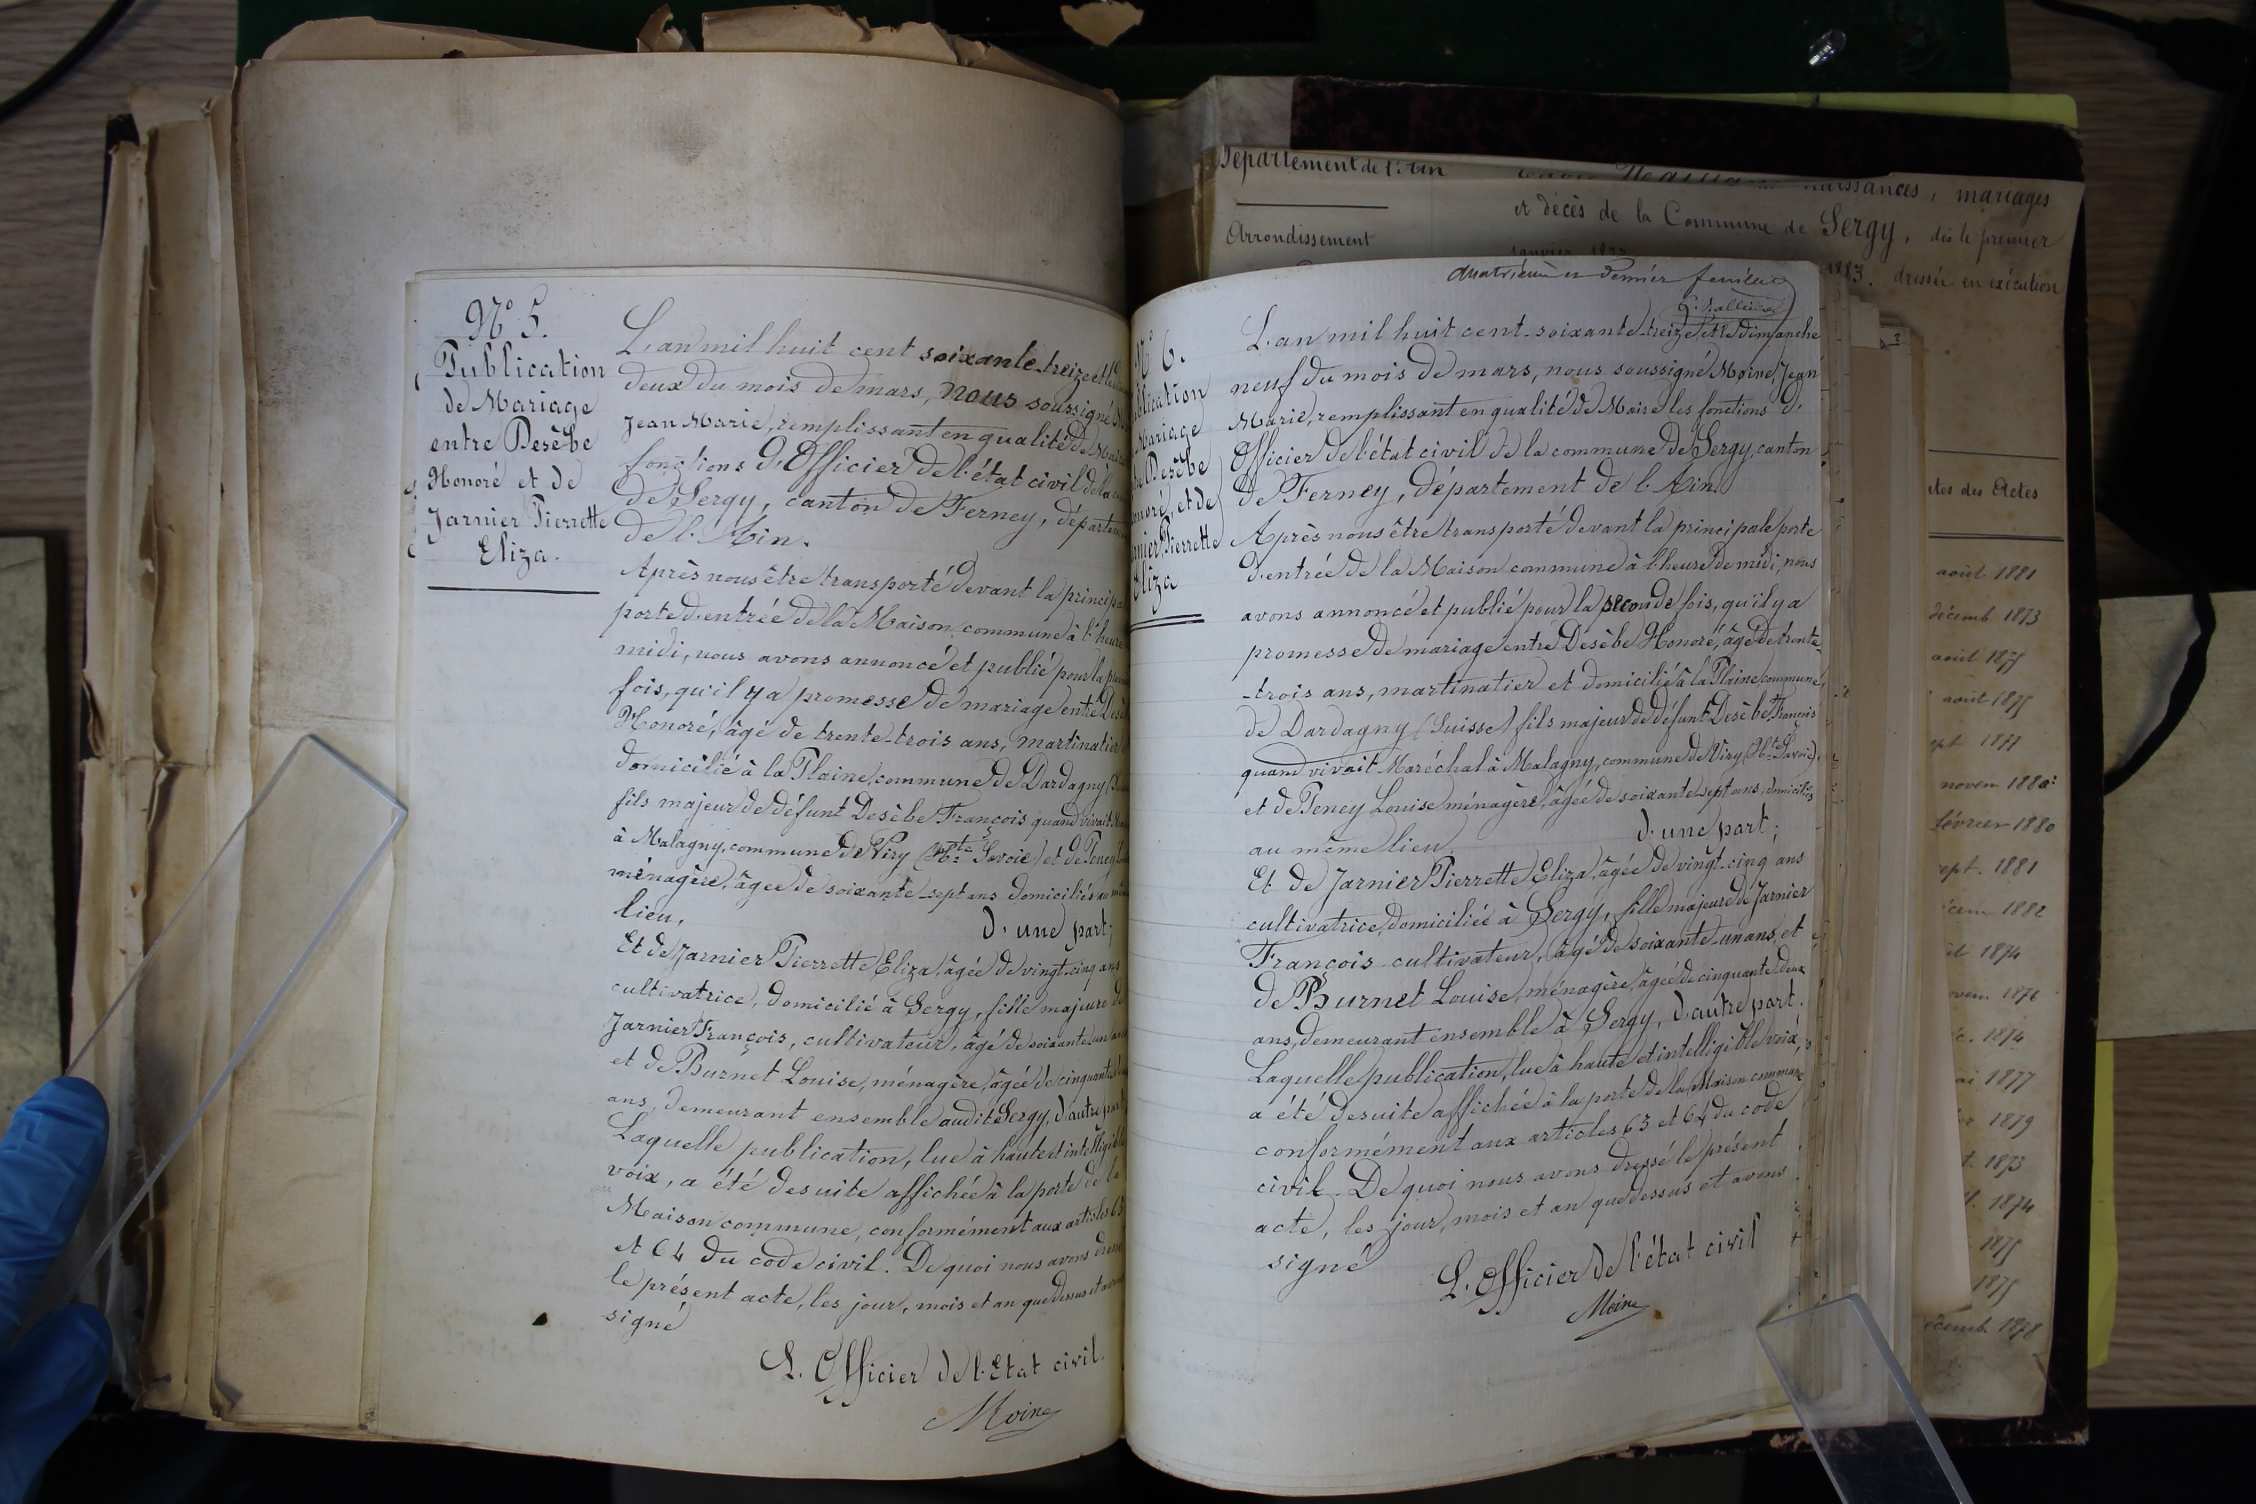 N° 5.
Publication
de Mariage
entre Desèbe
Honoré et de
Jarnier Pierrette
Eliza.
L'an mil huit cent soixante-treize et le
deux du mois de mars, nous soussigné
Jean Marie, remplissant en qualité de
fonctions d'Officier de l'état civil de la
de Sergy, canton de Ferney, département
de l'Ain.
Après nous être transporté devant la principale
porte d'entrée de la Maison commune à l'heure
midi, nous avons annoncé et publié pour la
fois, qu'il y a promesse de mariage entre
Honoré, âgé de trente-trois ans, martinatier
domicilié à la Plaine, commune de Dardagny
fils majeur de défunt Desèbe François quand vivait
à Malagny, commune de Viry (Hte Savoie) et de Peney
ménagère, âgée de soixante-sept ans domiciliés au
lieu, d'une part;
Et de Jarnier Pierrette Eliza, âgée de vingt-cinq ans
cultivatrice, domicilié à Sergy, fille majeure de
Jarnier François, cultivateur, âgé de soixante-un ans
et de Burnet Louise, ménagère, âgée de cinquante
ans, demeurant ensemble audit Sergy, d'autre part
Laquelle publication, lue à haute et intelligible
voix, a été desuite affichée à la porte de la
Maison commune, conformément aux articles 63
et 64 du code civil. De quoi nous avons dressé
le présent acte, les jour, mois et an que dessus et avons
signé
L'Officier de l'Etat civil.
Moine
Département de l'Ain
naissances, mariages
et décès de la Commune de Sergy, dès le premier
Arrondissement
1883. dressée en exécution
quatrième et dernier feuillet
N° 6.
Publication
Mariage
Desèbe
Honoré, et de
Jarnier Pierrette
Eliza
L'an mil huit cent-soixante-treize et le dimanche
neuf du mois de mars, nous soussigné Moine, Jean
Marie, remplissant en qualité de Maire les fonctions d'
Officier de l'état civil de la commune de Sergy, canton
de Ferney, département de l'Ain.
Après nous être transporté devant la principale porte
d'entrée de la Maison commune à l'heure de midi, nous
avons annoncé et publié pour la seconde fois, qu'il y a
promesse de mariage entre Desèbe Honoré, âgé de trente-
-trois ans, martinatier et domicilié à la Plaine commune,
de Dardagny (Suisse) fils majeur de défunt Desèbe François
quand vivait Maréchal à Malagny, commune de Viry (Hte Savoie),
et de Peney Louise ménagère, âgée de soixante-sept ans, domiciliés
au même lieu, d'une part;
Et de Jarnier Pierrette Eliza, âgée de vingt-cinq ans
cultivatrice, domiciliée à Sergy, fille majeure de Jarnier
François cultivateur, âgé de soixante-un ans, et
de Burnet Louise, ménagère, âgée de cinquante-deux
ans, demeurant ensemble à Sergy, d'autre part.
Laquelle publication, lue à haute et intelligible voix,
a été desuite affichée à la porte de la Maison commune
conformément aux articles 63 et 64 du code
civil. De quoi nous avons dressé le présent
acte, les jour, mois et an que dessus et avons
signé
L'Officier de l'état civil
Moine
des Actes
août 1881
décemb 1873
août 1875
août 1875
1877
novem 1880
février 1880
sept. 1881
1882
1874
1876
1874
1877
1879
1873
1874
1875
1875
décemb 1878